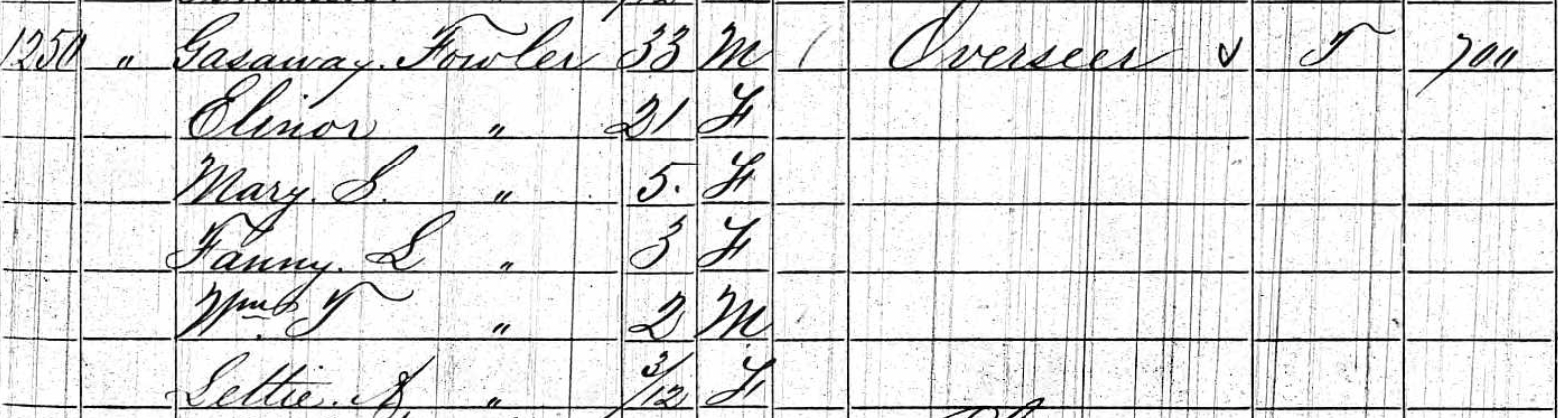 1250 " Gasaway. Fowler 33 M / Overseer & T 700
Elinor " 21 F
Mary. S. " 5. F
Fanny. L " 3 F
Wm. T " 2 M
Lettie. A, " 3/12 F